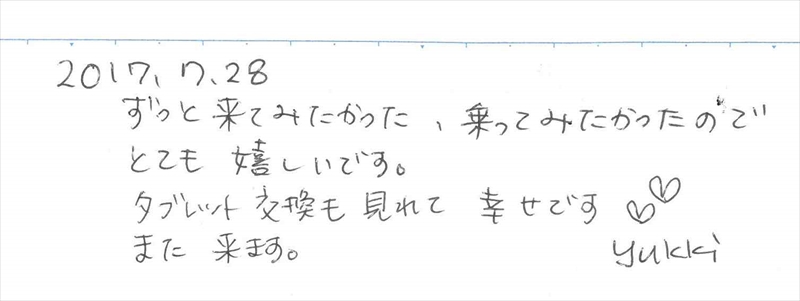 2017, 7, 28
ずっと来てみたかった、乗ってみたかったので
とても 嬉しいです。
タブレット 交換も 見れて 幸せです
また 来ます。 yukki